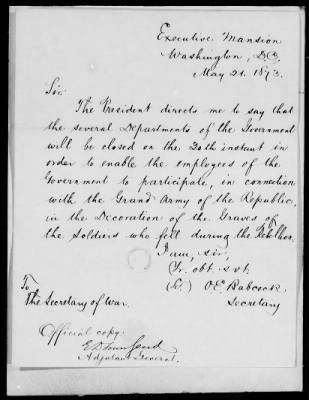 Executive Mansion
Washington, D.C.
May 21. 1873.
Sir:
The President directs me to say that
the several Departments of the Government
will be closed on the 30th instant in
order to enable the employees of the
Government to participate, in connection
with the Grand Army of the Republic,
in the Decoration of the Graves of
the Soldiers who fell during the Rebellion.
I am, sir,
Yr. obt. svt.
(Sd.) O.E. Babcock
Secretary
To
The Secretary of War.
Official copy.
E D Townsend
Adjutant General.